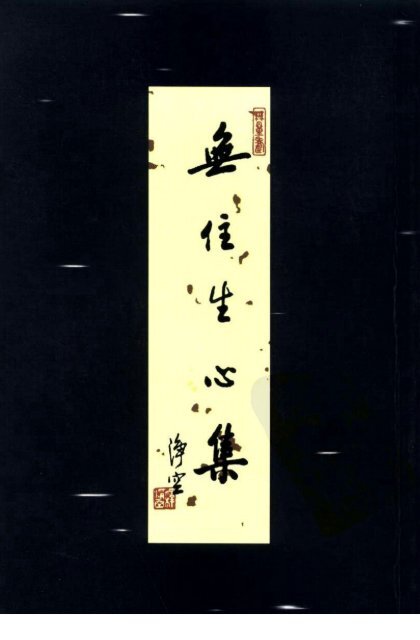 無住生心集
淨空